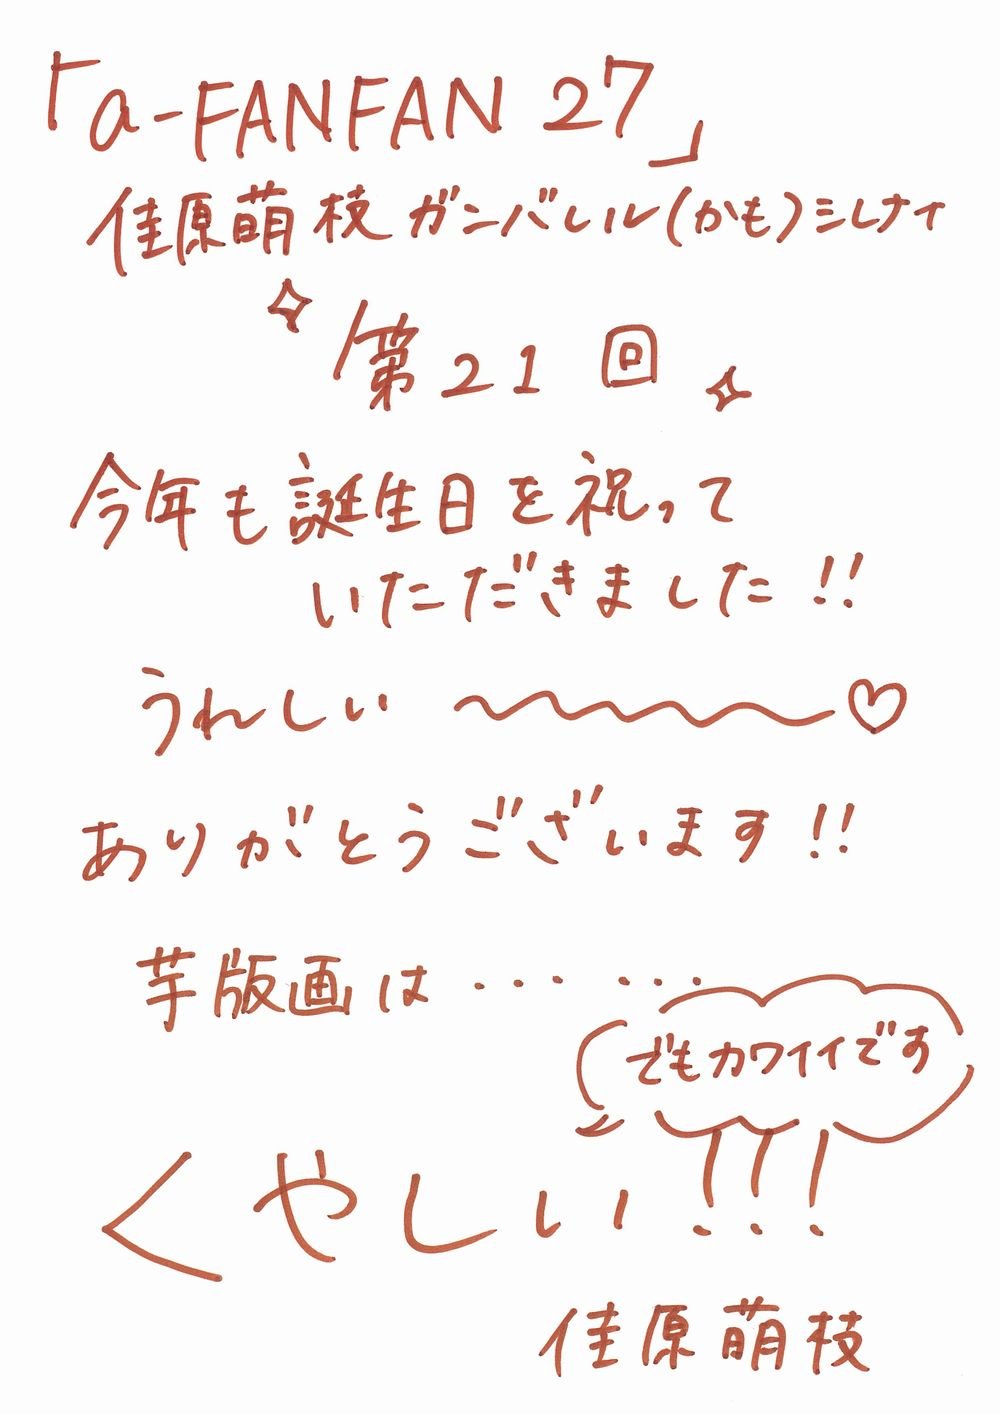 「a-FANFAN 27」
佳原萌枝ガンバレル(かも)シレナイ
第21回
今年も誕生日を祝って
いただきました!!
うれしい〜〜〜〜♡
ありがとうございます!!
芋版画は‥‥‥
でもカワイイです
くやしい!!!
佳原萌枝